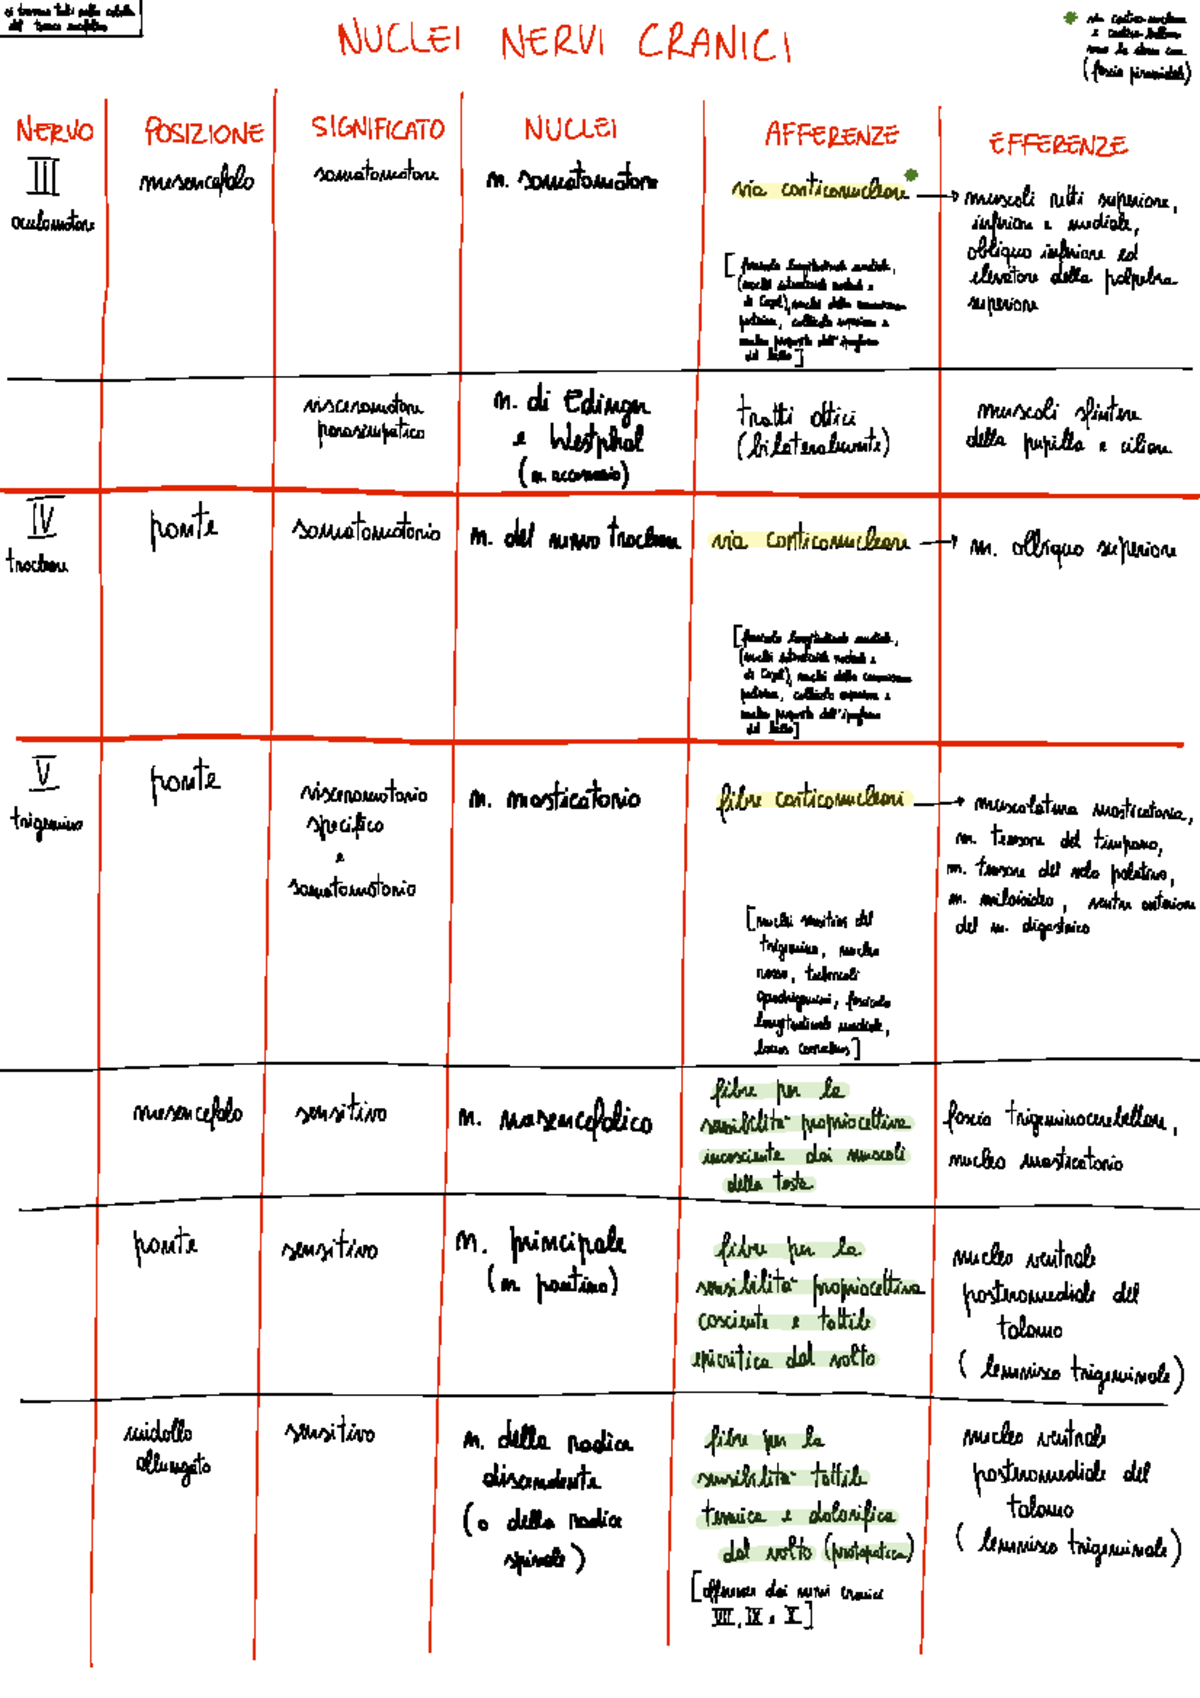 si trovano tutti nella
del tronco encefalico
NUCLEI NERVI CRANICI
via cortico-nucleare
e cortico-bulbare
sono la stessa cosa
(fascio piramidale)
NERVO
POSIZIONE
SIGNIFICATO
NUCLEI
AFFERENZE
EFFERENZE
III
oculomotore
mesencefalo
somatomotore
n. somatomotore
via corticonucleare
[fascicolo longitudinale mediale,
(nuclei interstiziali rostrale e
di Cajal), nuclei della commissura
posteriore, collicolo superiore e
nucleo preposto dell'ipoglosso
del lato]
muscoli retti superiore,
inferiore e mediale,
obliquo inferiore ed
elevatore della palpebra
superiore
visceromotore
parasimpatico
n. di Edinger
e Westphal
(n. accessorio)
tratti ottici
(bilateralmente)
muscoli sfintere
della pupilla e ciliare
IV
trocleare
ponte
somatomotorio
n. del nervo trocleare
via corticonucleare
[fascicolo longitudinale mediale,
(nuclei interstiziali rostrale e
di Cajal), nuclei della commissura
posteriore, collicolo superiore e
nucleo preposto dell'ipoglosso
del lato]
m. obliquo superiore
V
trigemino
ponte
visceromotorio
specifico
e
somatomotorio
n. masticatorio
fibre corticonucleari
[nuclei sensitivi del
trigemino, nucleo
rosso, tubercoli
quadrigemini, fascicolo
longitudinale mediale,
locus coeruleus]
muscolatura masticatoria,
m. tensore del timpano,
m. tensore del velo palatino,
m. miloioideo, ventre anteriore
del m. digastrico
mesencefalo
sensitivo
n. mesencefalico
fibre per la
sensibilità propriocettiva
incosciente dai muscoli
della testa
fascio trigeminocerebellare,
nucleo masticatorio
ponte
sensitivo
n. principale
(n. pontino)
fibre per la
sensibilità propriocettiva
cosciente e tattile
epicritica dal volto
nucleo ventrale
posteromediale del
talamo
(lemnisco trigeminale)
midollo
allungato
sensitivo
n. della radice
discendente
(o della radice
spinale)
fibre per la
sensibilità tattile
termica e dolorifica
dal volto (protopatica)
[afferenze dai nervi cranici
VII, IX e X]
nucleo ventrale
posteromediale del
talamo
(lemnisco trigeminale)